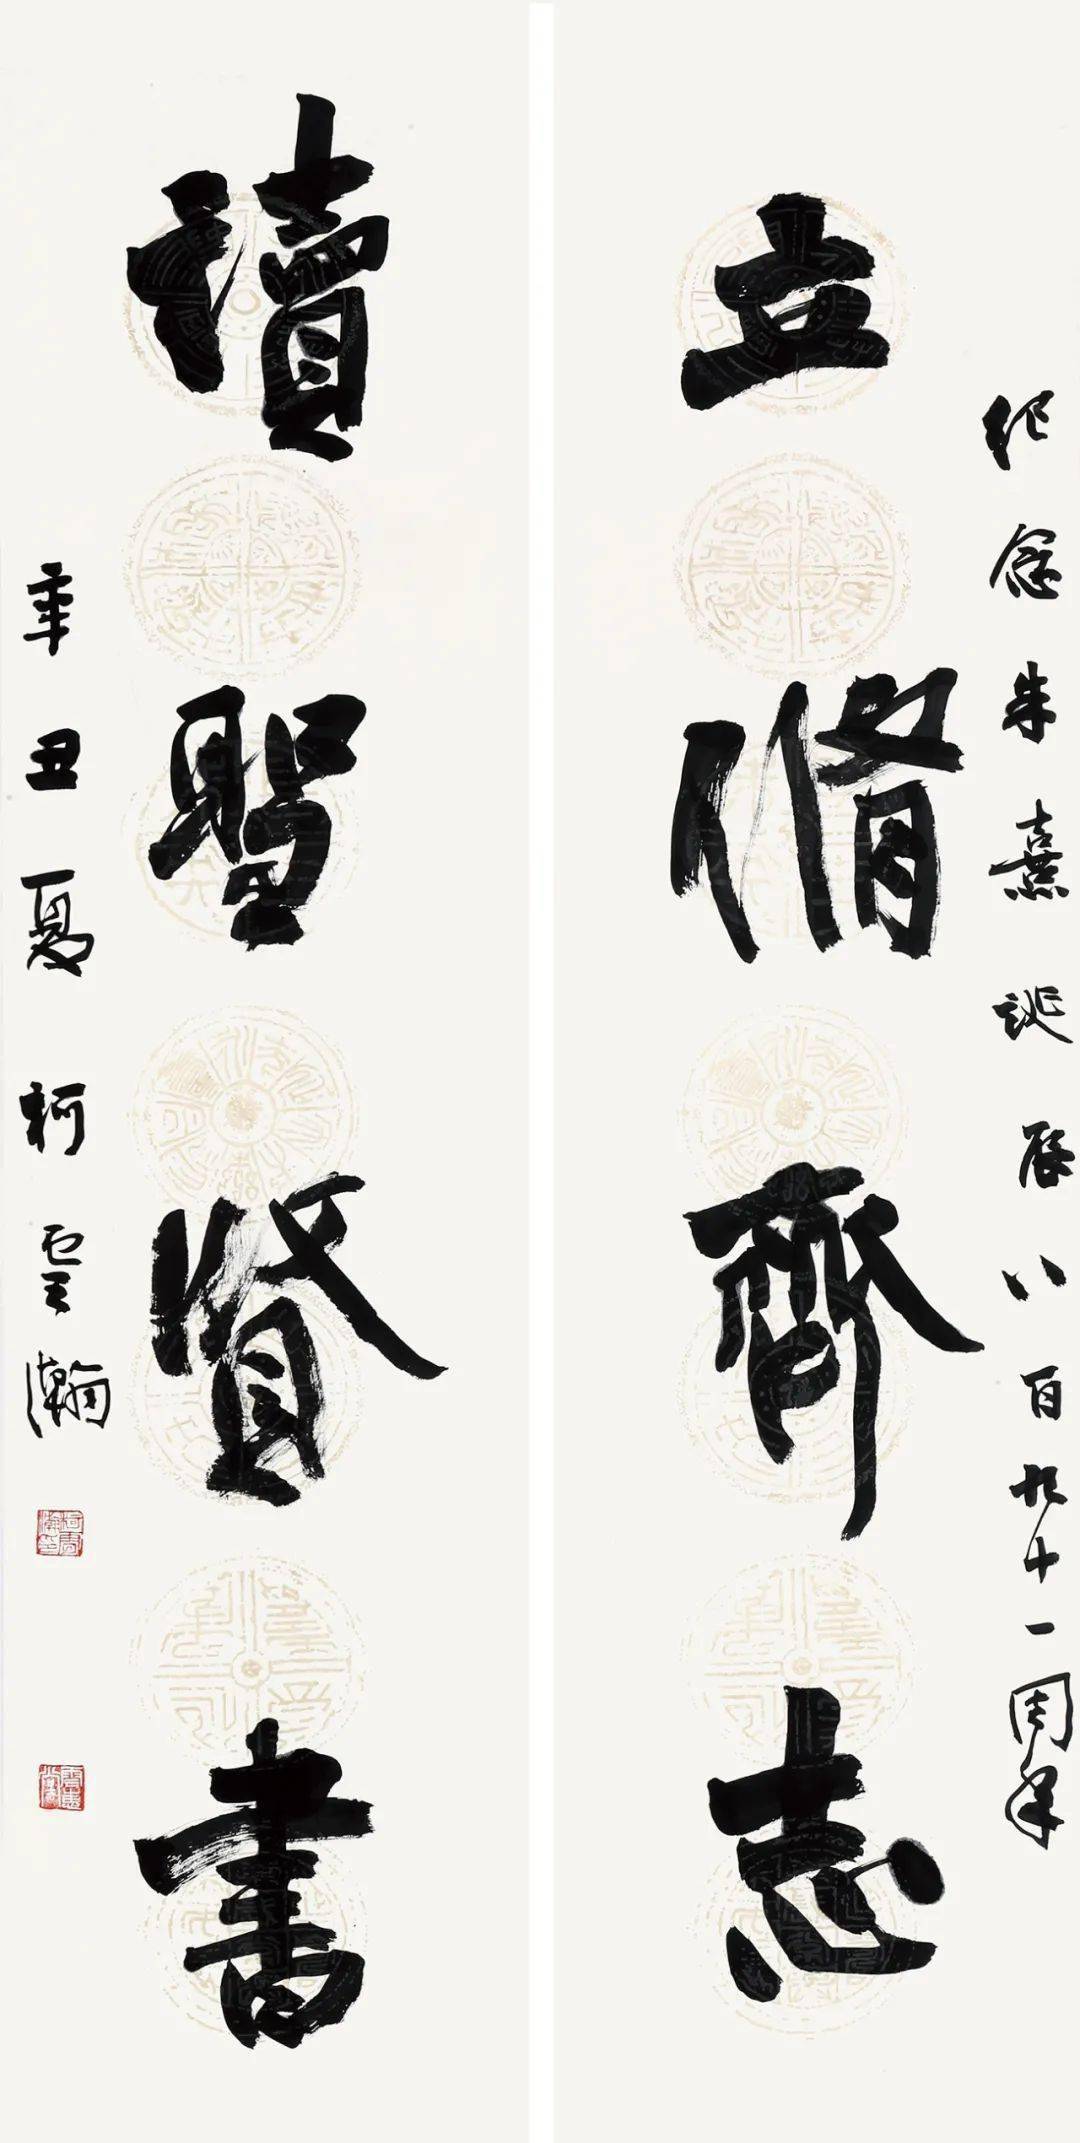 紀念朱熹誕辰八百九十一周年
立脩齊志
讀聖賢書
辛丑夏柯雲瀚